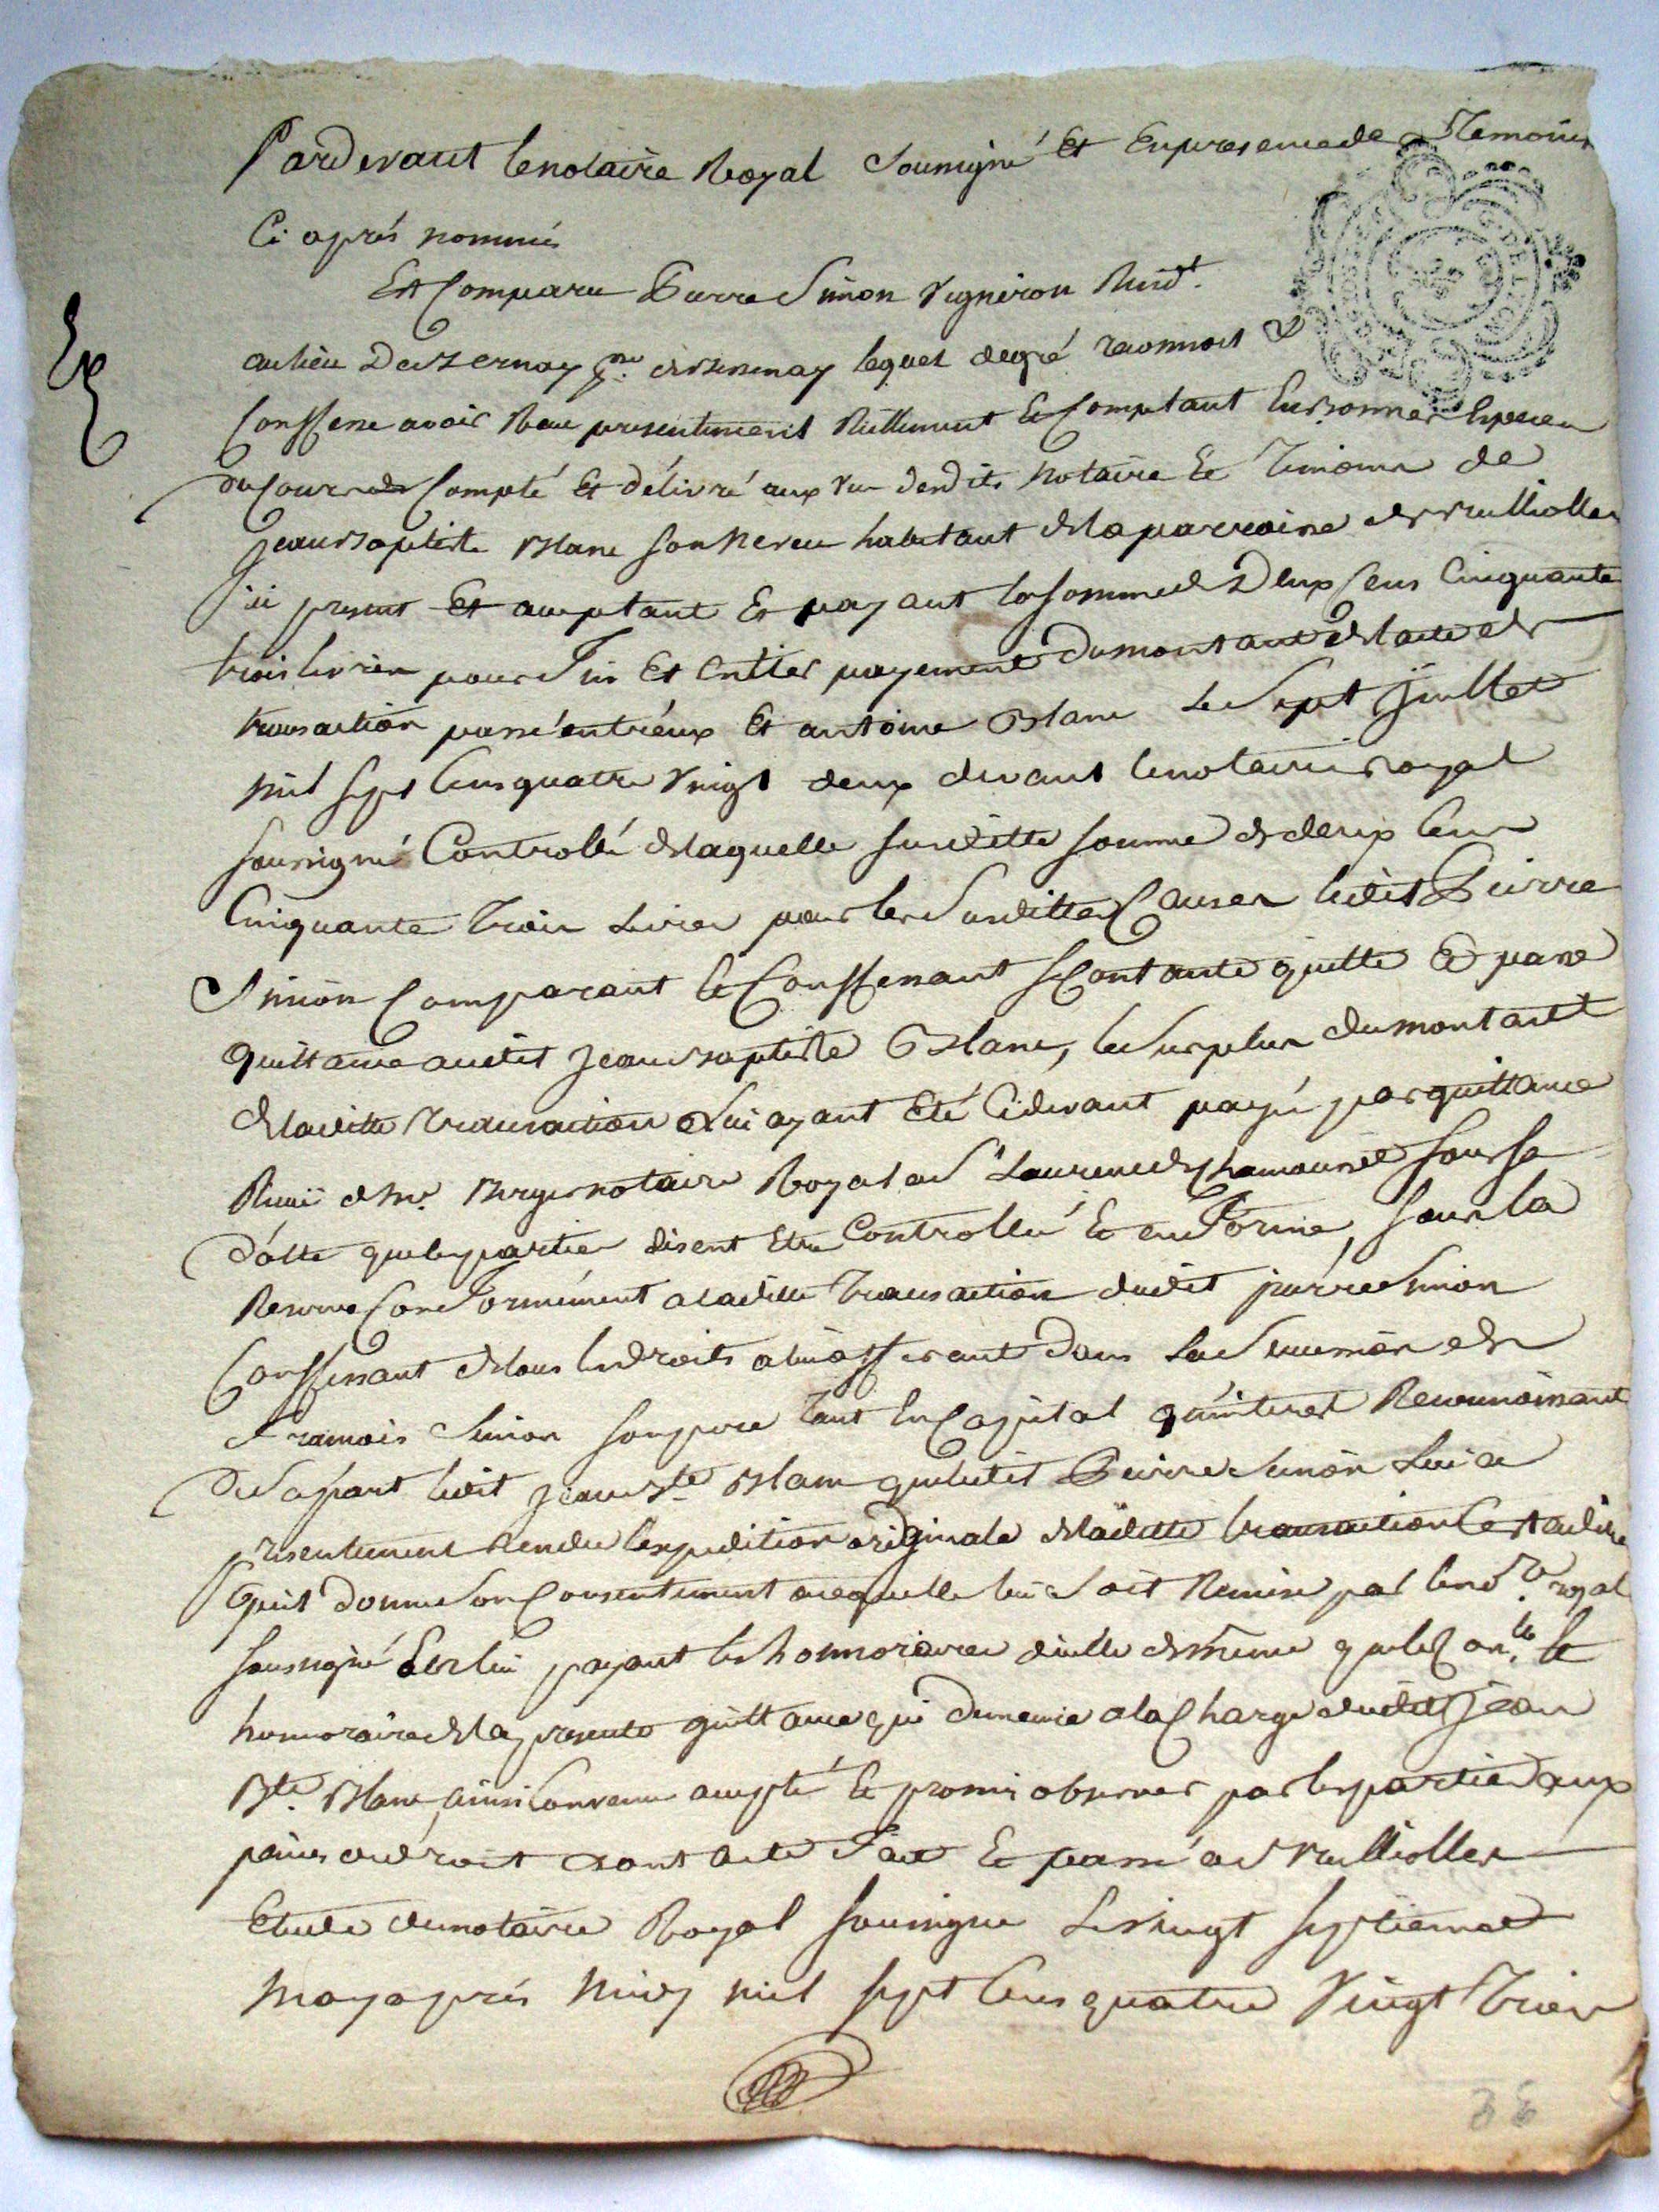 Pardevant lenotaire Royal soussigné Et Enpresencedes Temoins
Ci aprés nommés
Est Comparu Pierre Simon Vigneron Resid.t
aulieu De lequel degré reconnoit &
Confesse avoir Reçu presentement Réellement Et Comptant En bonnes Especes
du Cours Compté Et délivré aux vus desdits Notaire Et Temoins de
Jean baptiste Blanc son Neveu habitant delaparroisse de Vulliolles
ici present Et acceptant Et payant lasomme de Deux Cens Cinquante
trois livres pour Fin Et Entier payement Dumontant delacte de
transaction passé entr'eux Et antoine Blanc Le Sept Juillet
mil sept Cens quatre Vingt deux devant lenotaire royal
soussigné Controllé delaquelle susditte somme de deux Cens
Cinquante Trois Livres pour les Susdittes Causes ledit Pierre
Simon Comparant le Confessant se Contante quitte Et passe
quittance audit Jean baptiste Blanc, le Surplus dumontant
de laditte Transaction Lui ayant Eté Cidevant payé par quittance
Reçuë de Me. notaire Royal a St Laurent de Chamousset sous sa
datte que les parties disent Etre Controllée Et en Forme, sous la
Reserve Conformément a laditte Transaction dudit pierre Simon
Confessant de tous les droits a lui afferants Dans La Succession de
Francois Simon son pere tant En Capital qu'interet Reconnoissant
De sa part ledit Jean Bte Blanc que ledit Pierre Simon Lui a
presentement rendu l'expedition originale de laditte transaction Cest adire
qu'il donne son Consentement a cequelle lui soit Remise par le no.re royal
soussigné En lui payant les honnoraires d'icelle de même que le Con.le Et
honnoraires de la presente quittance qui Demeure a la Charge dudit Jean
Bte. Blanc ainsi Convenu accepté Et promis observer par les parties aux
peines de droit dont acte Fait Et passé a Vulliolles
Etude dunotaire Royal soussigné Le vingt septieme
may aprés midy mil sept Cens quatre Vingt Trois